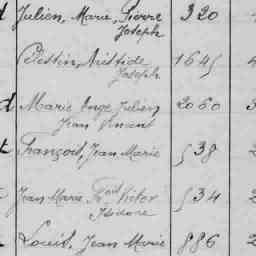 Julien, Marie, Pierre 320
Joseph
Aristide 1645
Joseph
Marie Ange Julien 2060
Jean Vincent
François, Jean Marie 538
Jean Marie Victor 534
Isidore
Louis, Jean Marie 886 2